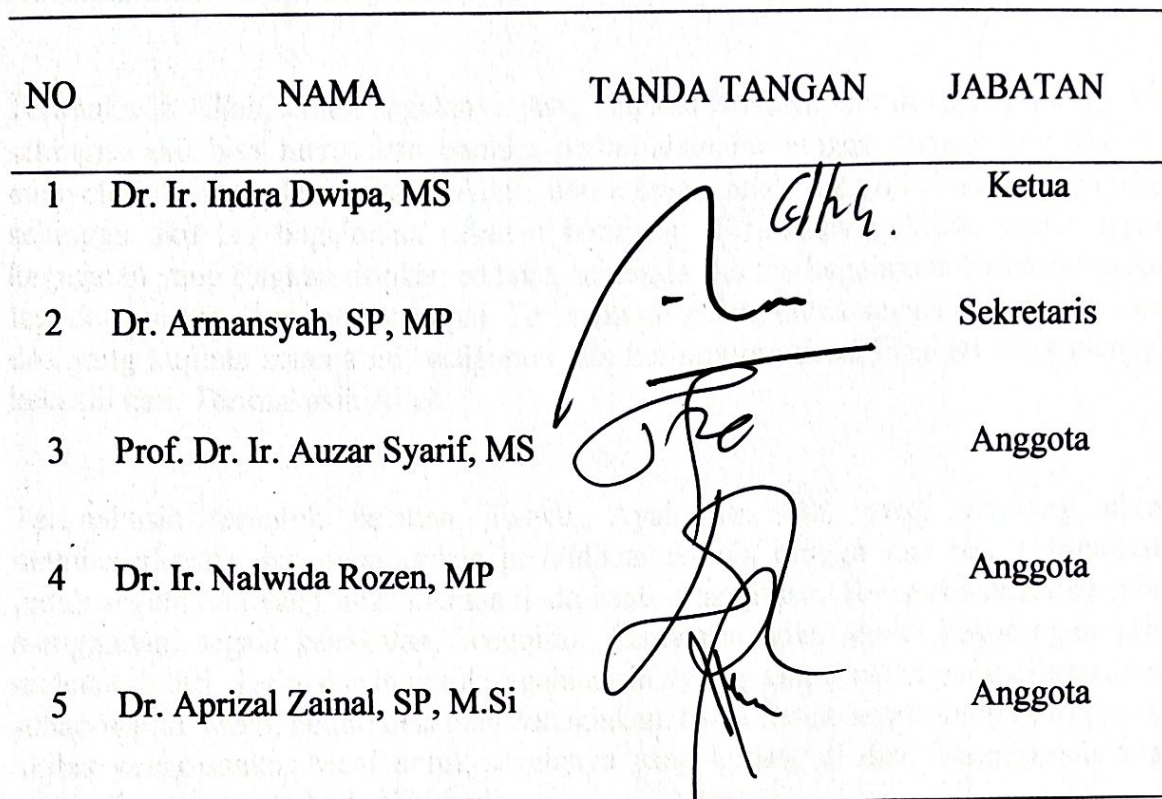 NO NAMA TANDA TANGAN JABATAN
1 Dr. Ir. Indra Dwipa, MS Ketua
2 Dr. Armansyah, SP, MP Sekretaris
3 Prof. Dr. Ir. Auzar Syarif, MS Anggota
4 Dr. Ir. Nalwida Rozen, MP Anggota
5 Dr. Aprizal Zainal, SP, M.Si Anggota